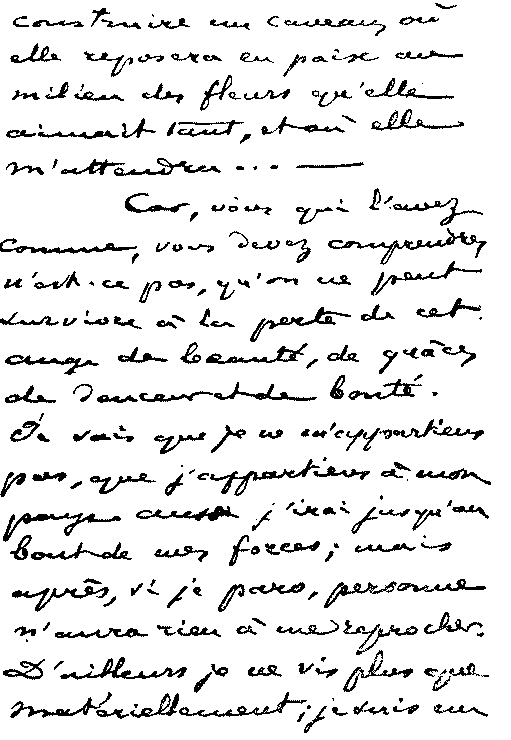 construire un caveau, où
elle reposera en paix au
milieu des fleurs qu'elle
aimait tant, et où elle
m'attendra... —
Car, vous qui l'avez
connue, vous devez comprendre,
n'est-ce pas, qu'on ne peut
survivre à la perte de cet
ange de beauté, de grâce,
de douceur et de bonté.
Je sais que je ne m'appartiens
pas, que j'appartiens à mon
pays aussi j'irai jusqu'au
bout de mes forces; mais
après, si je pars, personne
n'aura rien à me reprocher.
D'ailleurs je ne vis plus que
matériellement; je suis un